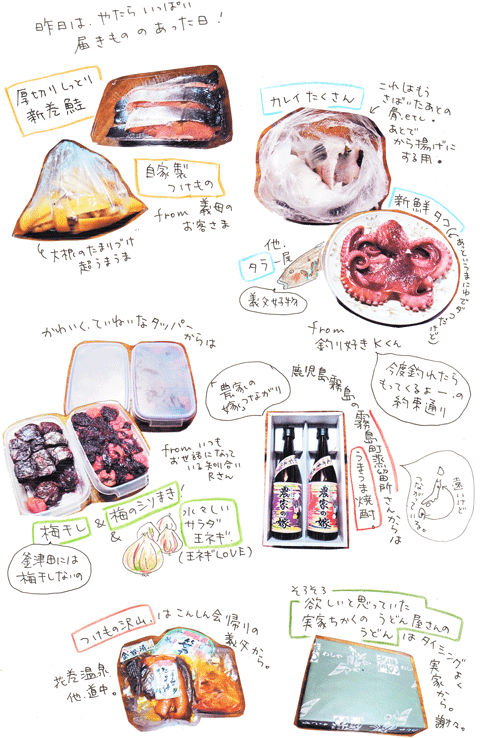 昨日は、やたらいっぱい
届きもののあった日!
厚切りしっとり
新巻鮭
自家製
つけもの
from 義母の
お客さま
大根のたまりづけ
超うまうま
カレイたくさん
これはもう
さばいたあとの
骨。etc。
あとで
から揚げに
する用。
新鮮タコ
他、
タラ一尾
義父好物
from
釣り好きKくん
今度釣れたら
もってくるよー、の
約束通り
かわいく、ていねいなタッパー
からは
from いつも
お世話になって
いる知り合い
Rさん
梅干し & 梅のシソまき!
&
水々しい
サラダ
玉ネギ
(玉ネギLOVE)
釜津田には
梅干しないの
"農家の
嫁"つながり
鹿児島霧島の
霧島町蒸留所さんからは
うまうま焼酎
農家の嫁
農家の嫁
つけもの沢山、はこんしん会帰りの
義父から。
花巻温泉
他、道中。
そろそろ
欲しいと思っていた
実家ちかくのうどん屋さんの
うどんはタイミングよく
実家から。
謝々。